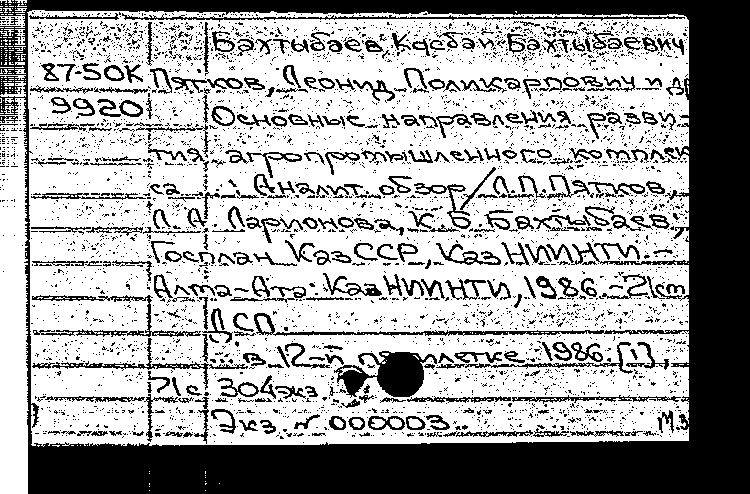 Бахтыбаев Касбай Бахтыбаевич
87-50К Пятков, Леонид Поликарпович и др
9920 Основные направления разви-
тия агропромышленного комплек
са ... : Аналит. обзор / Л.П. Пятков,
Л. А. Ларионова, К.Б. Бахтыбаев;
Госплан КазССР, КазНИИНТИ. -
Алма-Ата: КазНИИНТИ, 1986. - 21 см
ДСП.
... в 12-й пятилетке 1986. [1],
71с 304экз
Экз. № 000003